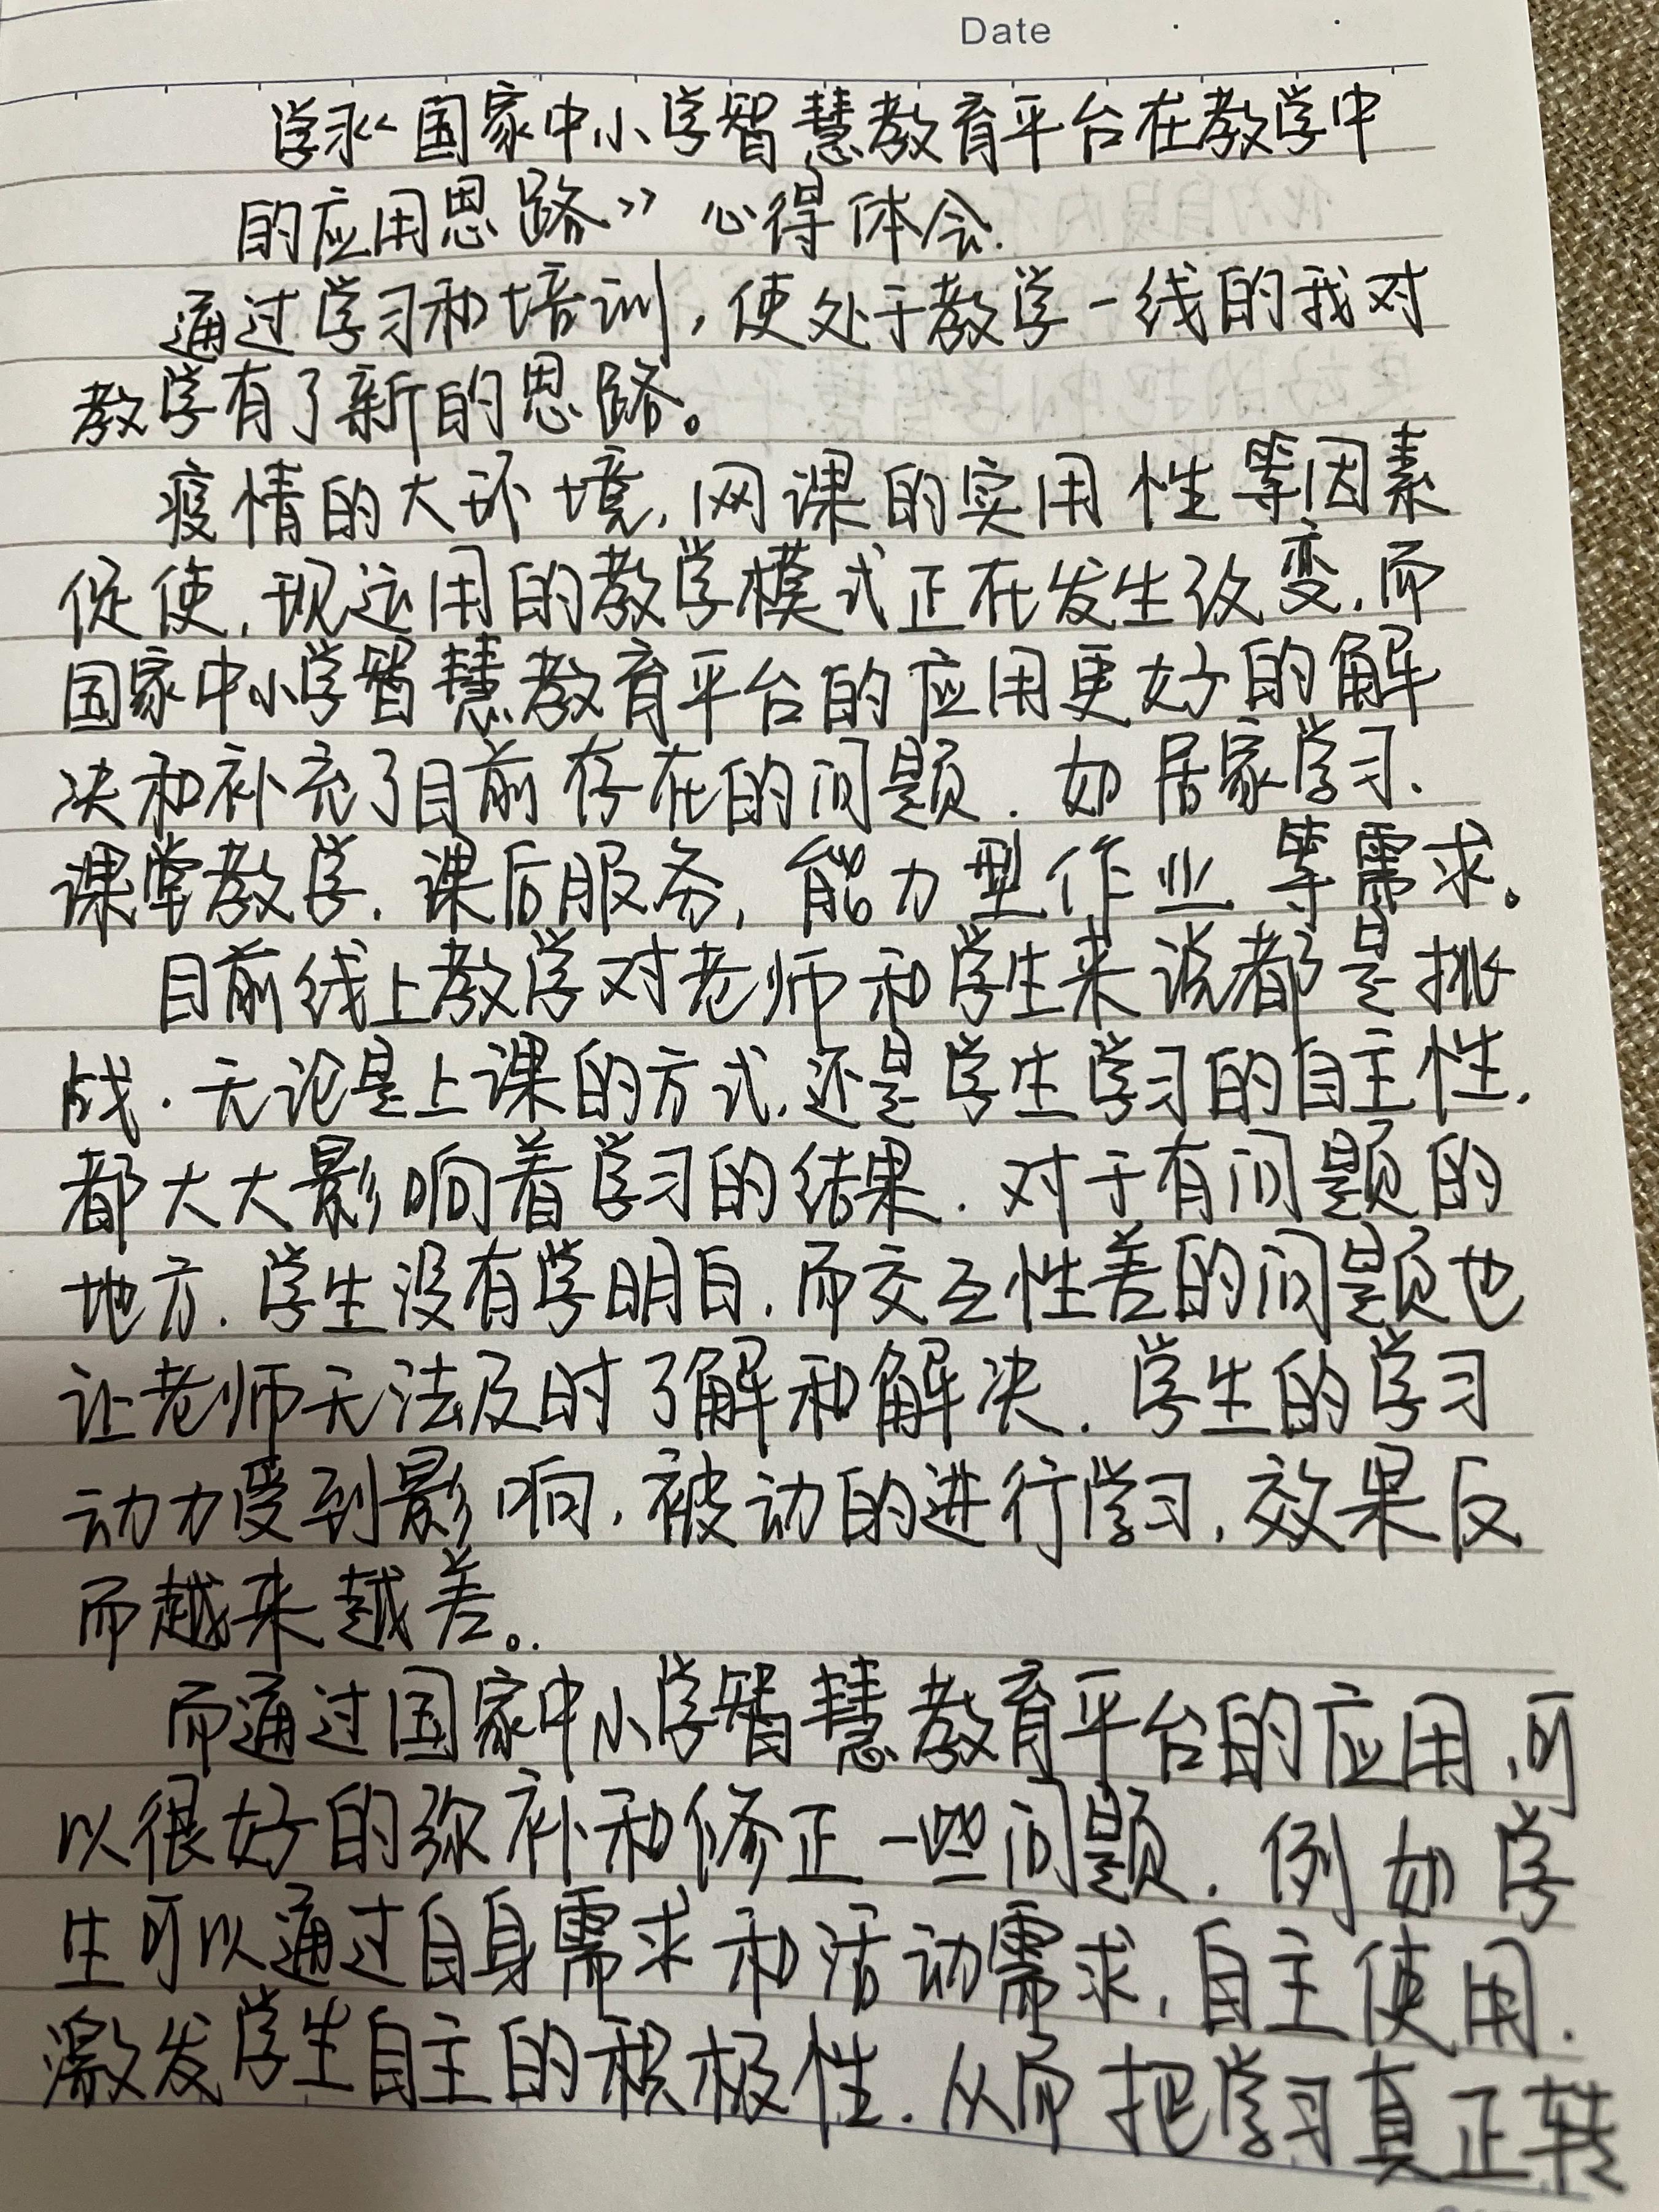 Date
学习《国家中小学智慧教育平台在教学中
的应用思路》心得体会.
通过学习和培训,使处于教学一线的我对
教学有了新的思路。
疫情的大环境,网课的实用性等因素
促使,现运用的教学模式正在发生改变,而
国家中小学智慧教育平台的应用更好的解
决和补充了目前存在的问题.如居家学习、
课堂教学、课后服务,能力型作业等需求。
目前线上教学对老师和学生来说都是挑
战.无论是上课的方式,还是学生学习的自主性,
都大大影响着学习的结果.对于有问题的
地方.学生没有学明白,而交互性差的问题也
让老师无法及时了解和解决.学生的学习
动力受到影响,被动的进行学习,效果反
而越来越差。
而通过国家中小学智慧教育平台的应用,可
以很好的弥补和修正一些问题.例如学
生可以通过自身需求和活动需求,自主使用.
激发学生自主的积极性.从而把学习真正转